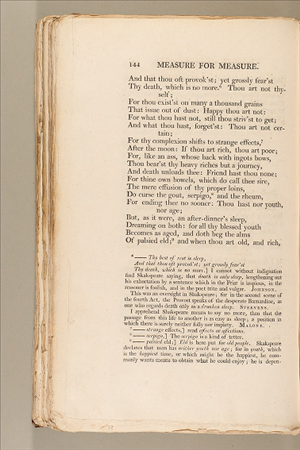 144 MEASURE FOR MEASURE.
And that thou oft provok'st; yet grossly fear'st
Thy death, which is no more.⁶ Thou art not thy-
self;
For thou exist'st on many a thousand grains
That issue out of dust: Happy thou art not:
For what thou hast not, still thou striv'st to get;
And what thou hast, forget'st: Thou art not cer-
tain;
For thy complexion shifts to strange effects,⁷
After the moon: If thou art rich, thou art poor;
For, like an ass, whose back with ingots bows,
Thou bear'st thy heavy riches but a journey,
And death unloads thee: Friend hast thou none;
For thine own bowels, which do call thee sire,
The mere effusion of thy proper loins,
Do curse the gout, serpigo,⁸ and the rheum,
For ending thee no sooner: Thou hast nor youth,
nor age;
But, as it were, an after-dinner's sleep,
Dreaming on both: for all thy blessed youth
Becomes as aged, and doth beg the alms
Of palsied eld;⁹ and when thou art old, and rich,
⁶ —— Thy best of rest is sleep,
And that thou oft provok'st; yet grossly fear'st
Thy death, which is no more.] I cannot without indignation
find Shakspeare saying, that death is only sleep, lengthening out
his exhortation by a sentence which in the Friar is impious, in the
reasoner is foolish, and in the poet trite and vulgar. JOHNSON.
This was an oversight in Shakspeare; for in the second scene of
the fourth Act, the Provost speaks of the desperate Barnardine, as
one who regards death only as a drunken sleep. STEEVENS.
I apprehend Shakspeare means to say no more, than that the
passage from this life to another is as easy as sleep; a position in
which there is surely neither folly nor impiety. MALONE.
⁷ —— strange effects,] read affects or affections.
⁸ —— serpigo,] The serpigo is a kind of tetter.
⁹ —— palsied eld;] Eld is here put for old people. Shakspeare
declares that man has neither youth nor age; for in youth, which
is the happiest time, or which might be the happiest, he com-
monly wants means to obtain what he could enjoy; he is depen-